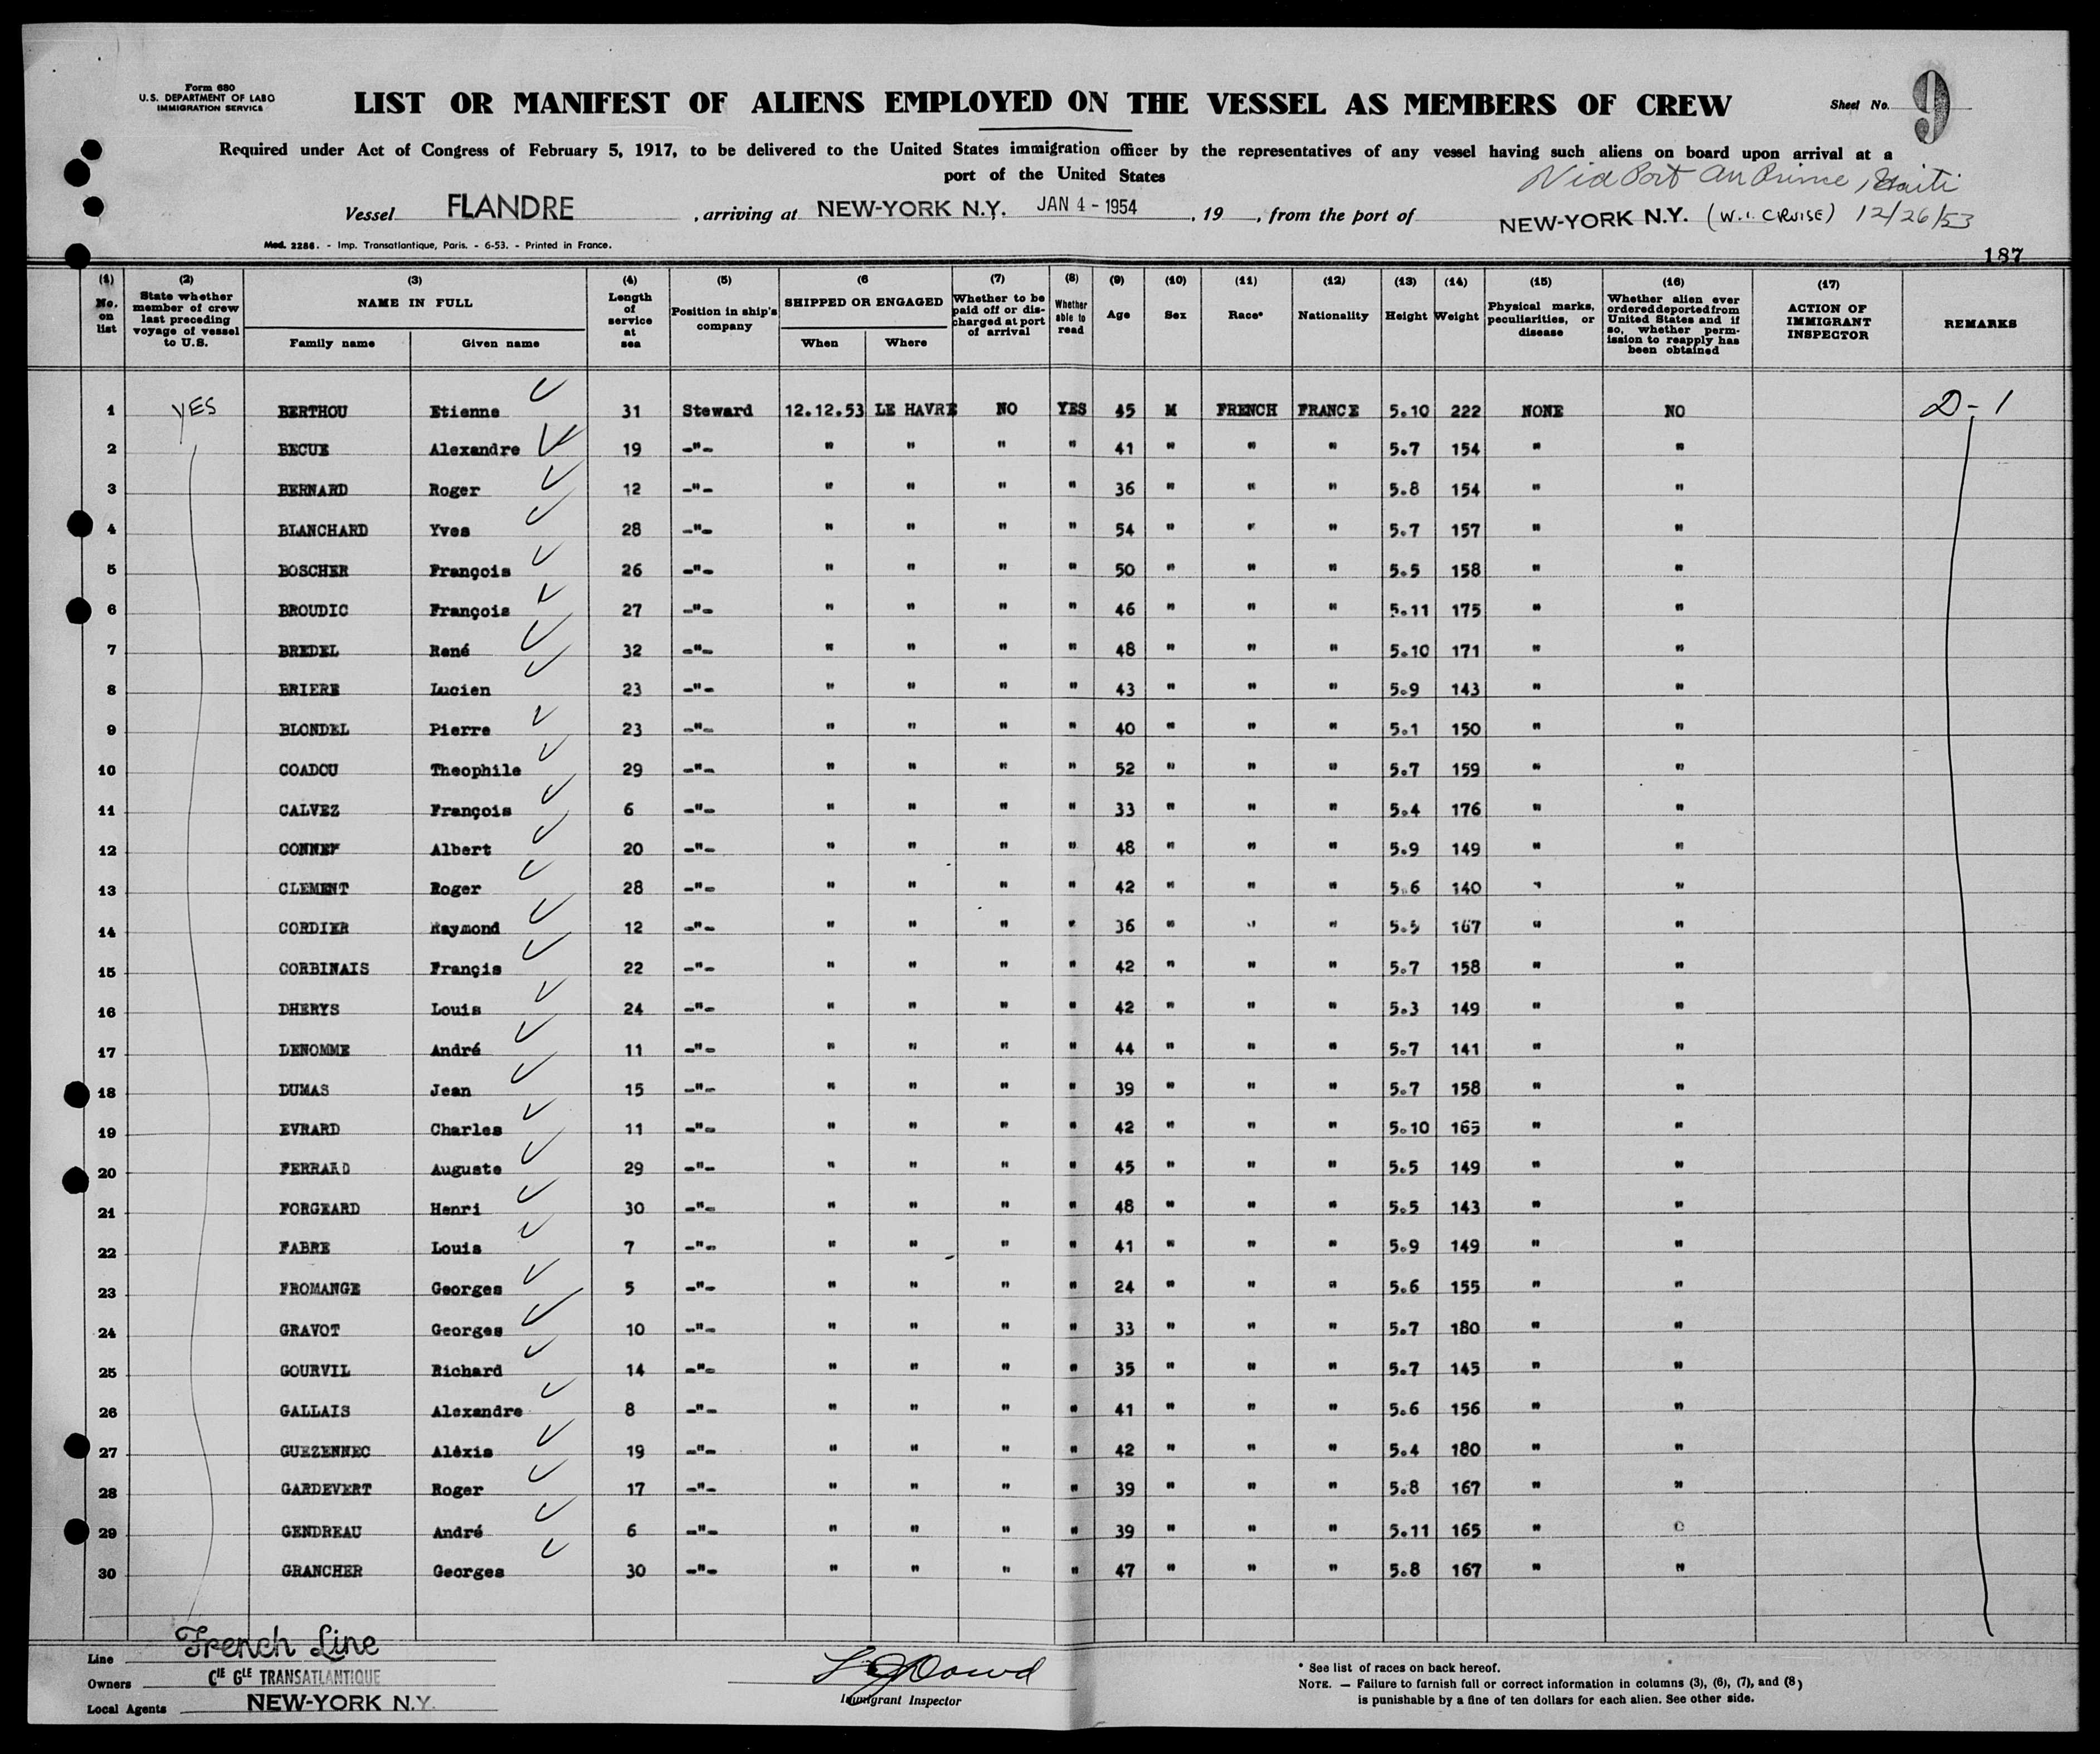 Form 680
U.S. DEPARTMENT OF LABO
IMMIGRATION SERVICE
LIST OR MANIFEST OF ALIENS EMPLOYED ON THE VESSEL AS MEMBERS OF CREW
Sheet No. 9
Required under Act of Congress of February 5, 1917, to be delivered to the United States immigration officer by the representatives of any vessel having such aliens on board upon arrival at a
port of the United States
Via Port Au Prince, Haiti
Vessel FLANDRE , arriving at NEW-YORK N.Y. JAN 4 - 1954 , 19 , from the port of NEW-YORK N.Y. (W.I. CRUISE) 12/26/53
Mod. 2286. - Imp. Transatlantique, Paris. - 6-53. - Printed in France.
187
(1) No. on list
(2) State whether member of crew last preceding voyage of vessel to U.S.
(3) NAME IN FULL Family name Given name
(4) Length of service at sea
(5) Position in ship's company
(6 SHIPPED OR ENGAGED When Where
(7) Whether to be paid off or discharged at port of arrival
(8) Whether able to read
(9) Age
(10) Sex
(11) Race*
(12) Nationality
(13) Height
(14) Weight
(15) Physical marks, peculiarities, or disease
(16) Whether alien ever ordered deported from United States and if so, whether permission to reapply has been obtained
(17) ACTION OF IMMIGRANT INSPECTOR
REMARKS
1 YES BERTHOU Etienne 31 Steward 12.12.53 LE HAVRE NO YES 45 M FRENCH FRANCE 5.10 222 NONE NO D-1
2 BECUE Alexandre 19 -"- " " " " 41 " " " 5.7 154 " "
3 BERNARD Roger 12 -"- " " " " 36 " " " 5.8 154 " "
4 BLANCHARD Yves 28 -"- " " " " 54 " " " 5.7 157 " "
5 BOSCHER François 26 -"- " " " " 50 " " " 5.5 158 " "
6 BROUDIC François 27 -"- " " " " 46 " " " 5.11 175 " "
7 BREDEL René 32 -"- " " " " 48 " " " 5.10 171 " "
8 BRIERE Lucien 23 -"- " " " " 43 " " " 5.9 143 " "
9 BLONDEL Pierre 23 -"- " " " " 40 " " " 5.1 150 " "
10 COADOU Theophile 29 -"- " " " " 52 " " " 5.7 159 " "
11 CALVEZ François 6 -"- " " " " 33 " " " 5.4 176 " "
12 CONNEF Albert 20 -"- " " " " 48 " " " 5.9 149 " "
13 CLEMENT Roger 28 -"- " " " " 42 " " " 5.6 140 " "
14 CORDIER Raymond 12 -"- " " " " 36 " " " 5.5 167 " "
15 CORBINAIS Françis 22 -"- " " " " 42 " " " 5.7 158 " "
16 DHERYS Louis 24 -"- " " " " 42 " " " 5.3 149 " "
17 DENOMME André 11 -"- " " " " 44 " " " 5.7 141 " "
18 DUMAS Jean 15 -"- " " " " 39 " " " 5.7 158 " "
19 EVRARD Charles 11 -"- " " " " 42 " " " 5.10 165 " "
20 FERRARD Auguste 29 -"- " " " " 45 " " " 5.5 149 " "
21 FORGEARD Henri 30 -"- " " " " 48 " " " 5.5 143 " "
22 FABRE Louis 7 -"- " " " " 41 " " " 5.9 149 " "
23 FROMANGE Georges 5 -"- " " " " 24 " " " 5.6 155 " "
24 GRAVOT Georges 10 -"- " " " " 33 " " " 5.7 180 " "
25 GOURVIL Richard 14 -"- " " " " 35 " " " 5.7 145 " "
26 GALLAIS Alexandre 8 -"- " " " " 41 " " " 5.6 156 " "
27 GUEZENNEC Aléxis 19 -"- " " " " 42 " " " 5.4 180 " "
28 GARDEVERT Roger 17 -"- " " " " 39 " " " 5.8 167 " "
29 GENDREAU André 6 -"- " " " " 39 " " " 5.11 165 " "
30 GRANCHER Georges 30 -"- " " " " 47 " " " 5.8 167 " "
Line French Line
Owners CIE GLE TRANSATLANTIQUE
Local Agents NEW-YORK N.Y.
Immigrant Inspector
* See list of races on back hereof.
NOTE. — Failure to furnish full or correct information in columns (3), (6), (7), and (8)
is punishable by a fine of ten dollars for each alien. See other side.